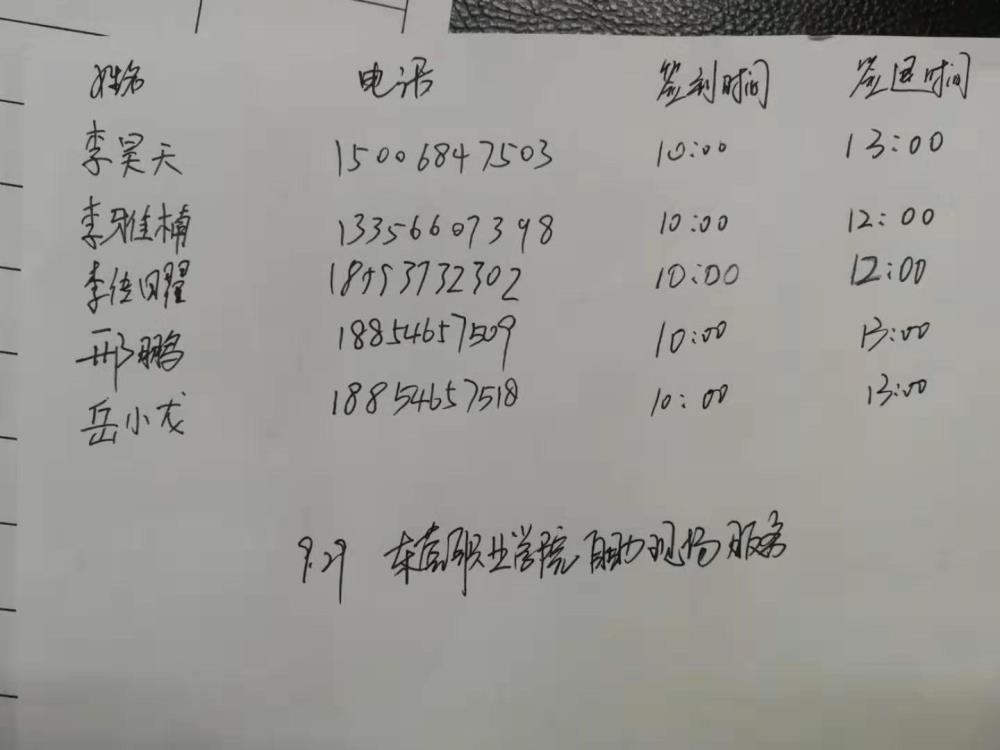 姓名 电话 签到时间 签退时间
李昊天 15006847503 10:00 13:00
李雅楠 13356607398 10:00 12:00
李佳曜 18953732302 10:00 12:00
邢鹏 18854657509 10:00 13:00
岳小龙 18854657518 10:00 13:00
9.29 东营职业学院自助现场服务